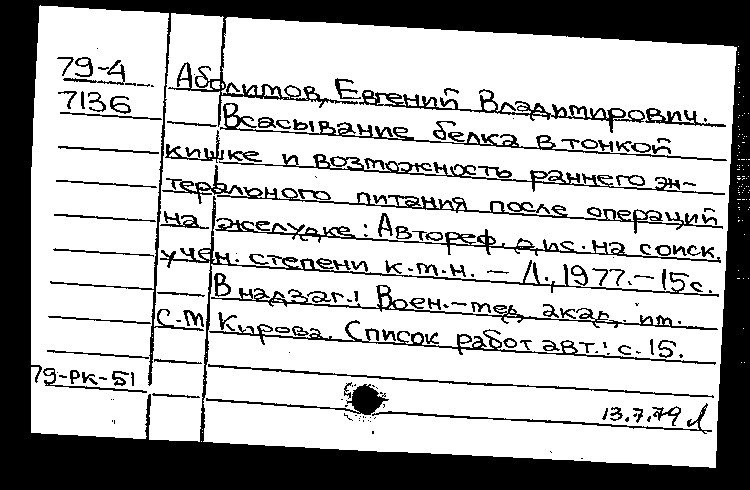 79-4 Аболимов, Евгений Владимирович.
7136 Всасывание белка в тонкой
кишке и возможность раннего эн-
терального питания после операций
на желудке: Автореф. дис. на соиск.
учен. степени к.м.н. - Л., 1977.-15с.
В надзаг.: Воен.-мед. акад. им.
С.М Кирова. Список работ авт.: с.15.
79-РК-51
13.7.79